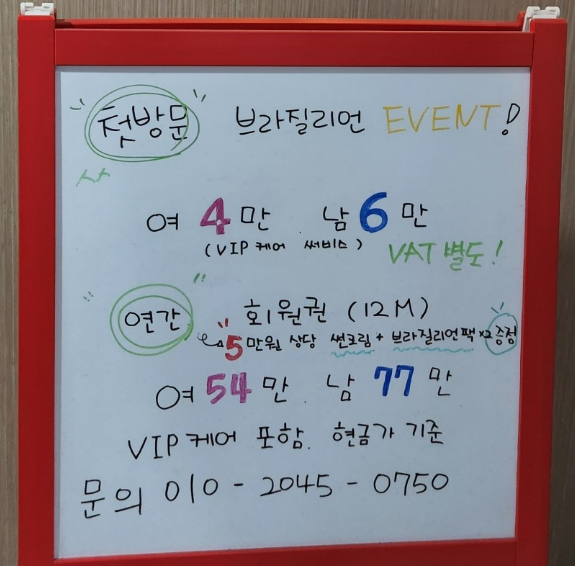 첫방문 브라질리언 EVENT!
여 4만 남 6만
(VIP 케어 써비스) VAT 별도!
연간 회원권 (12M)
5만원 상당 썬크림 + 브라질리언팩 x2 증정
여 54만 남 77만
VIP 케어 포함. 현금가 기준
문의 010-2045-0750